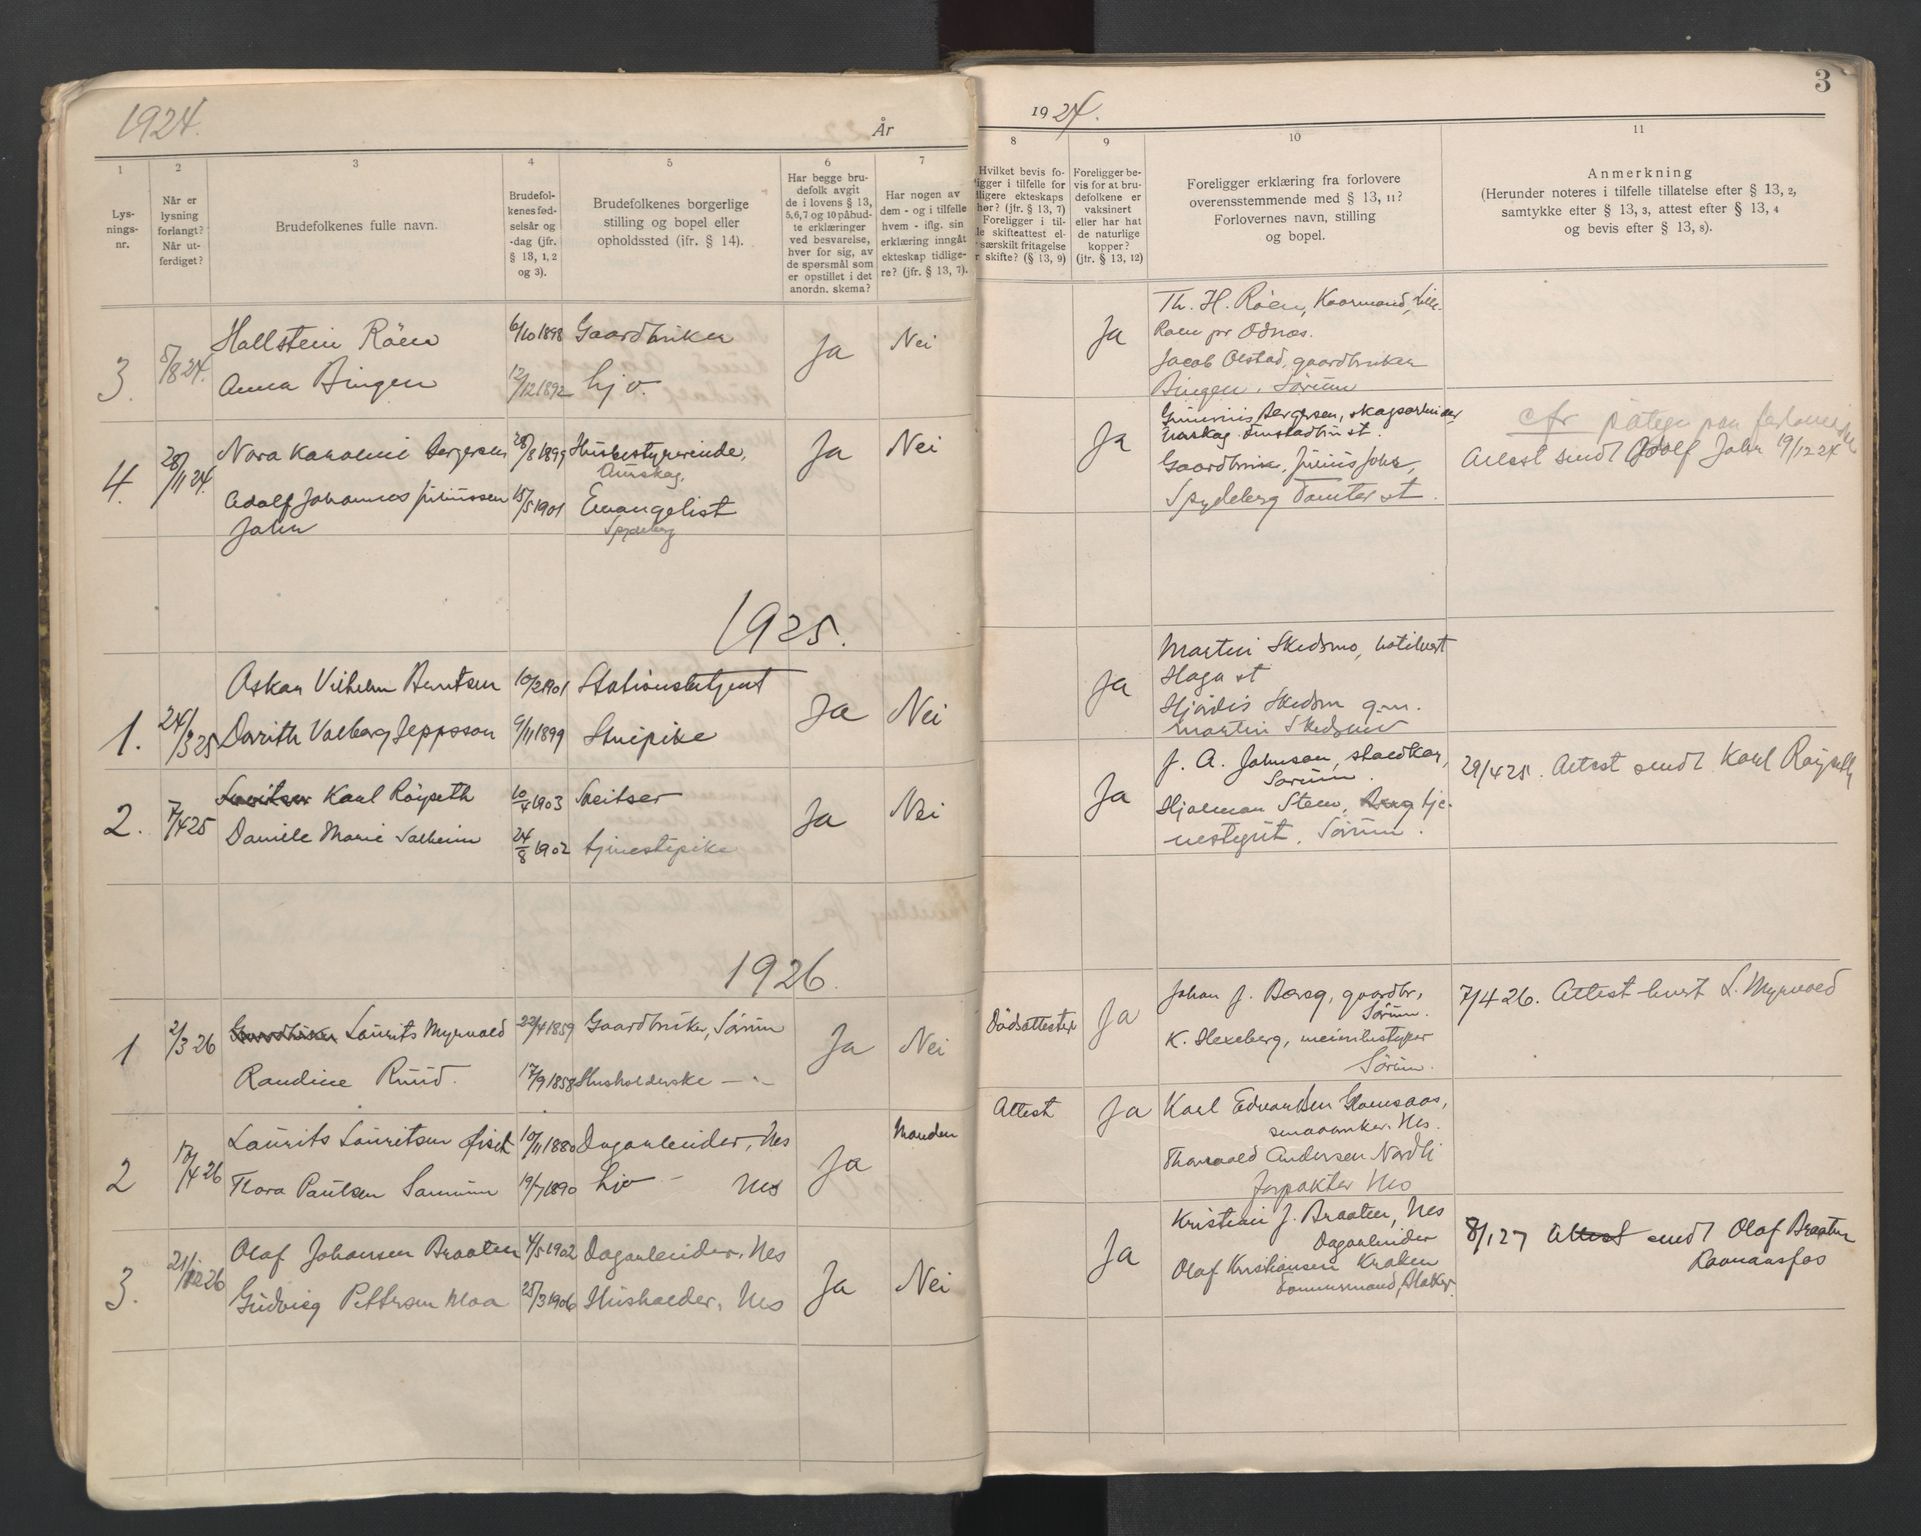 1924.
År
1
Lys-
nings-
nr.
2
Når er
lysning
forlangt?
Når ut-
ferdiget?
3
Brudefolkenes fulle navn.
4
Brudefol-
kenes fød-
selsår og
-dag (jfr.
§ 13, 1, 2
og 3).
5
Brudefolkenes borgerlige
stilling og bopel eller
opholdssted (ifr. § 14).
6
Har begge bru-
defolk avgit
de i lovens § 13,
5,6,7 og 10 påbud-
te erklæringer
ved besvarelse,
hver for sig, av
de spørsmål som
er opstillet i det
anordn. skema?
7
Har nogen av
dem - og i tilfelle
hvem - iflg. sin
erklæring inngåt
ekteskap tidlige-
re? (jfr. § 13, 7).
3. 5/8 24. Hallstein Röen 6/10 1898 Gaardbruker Ja Nei
Anna Bingen 12/12 1892 hj v.
4. 28/11 24. Nora Karoline Bergersen 28/8 1899 Husbestyrerinde, Ja Nei
Aurskog.
Adolf Johannes Juliussen 15/5 1901 Evangelist
Jahr Spydeberg
1925.
1. 24/3 25 Oskar Vilhelm Berntsen 10/2 1901 Stationsbetjent Ja Nei
Dorith Valborg Jeppsson 9/11 1899 Stuepike
2. 7/4 25 Sveitser Karl Röyseth 10/4 1903 Sveitser Ja Nei
Daniele Marie Solheim 24/8 1902 tjenestepike
1926.
1 2/3 26 Gaardbruker Laurits Myrvold 22/4 1859 Gaardbruker, Sörum Ja Nei
Randine Ruud. 17/9 1858 Husholderske — " —
2 17/4 26 Laurits Lauritsen 10/11 1880 Dagarbeider, Nes Ja Manden
Thora Paulsen 19/7 1890 hjv — Nes
3. 21/12 26 Olaf Johansen Braaten 4/5 1902 Dagarbeider, Nes Ja Nei
Gudvieg Pettersen Moa 25/3 1906 Husholder, Nes
3
1924.
8
Hvilket bevis fo-
igger i tilfelle for
dligere ekteskaps
hør? (jfr. § 13, 7)
Foreligger i til-
le skifteattest el-
særskilt fritagelse
r skifte? (§ 13, 9)
9
Foreligger be-
vis for at bru-
defolkene er
vaksinert
eller har hat
de naturlige
kopper?
(jfr. § 13, 12)
10
Foreligger erklæring fra forlovere
overensstemmende med § 13, 11?
Forlovernes navn, stilling
og bopel.
11
Anmerkning
(Herunder noteres i tilfelle tillatelse efter § 13, 2,
samtykke efter § 13, 3, attest efter § 13, 4
og bevis efter § 13, 8).
Ja Th. H. Röen, Kaarmand, Lille
Roen pr Odnes.
Jacob Olstad, gaardbruker
Bingen, Sörum
Ja Gunerius Bergersen, skogsarbeider
Aurskog
Gaardbruk. Julius Jahr,
Spydeberg Tomter st.
cfr
Attest sendt Adolf Jahr 19/12 24
Ja Martin Skedsmo,
Haga st
Hjördis Skedsm g.m.
Martin Skedsmo
Ja J. A. Johnson, staldkar,
Sörum.
Hjalmar Steen, tje-
nestegut, Sörum.
29/4 25. Attest sendt Karl Röyseth
Dödsattester Ja Johan J. Berg, gaardbr,
Sörum.
K. Hexeberg, meieribestyrer
Sörum.
7/4 26. Attest L. Myrvold
Attest Ja Karl Edvardsen Glomsaas,
smaabruker. Nes.
Thorvald Andersen Nordli
forpakter Nes
Ja Kristian J. Braaten, Nes
Dagarbeider
Olaf Kristiansen Kraken
Tömmermand,
8/1 27 Attest sendt Olaf Braaten
Raanaasfos